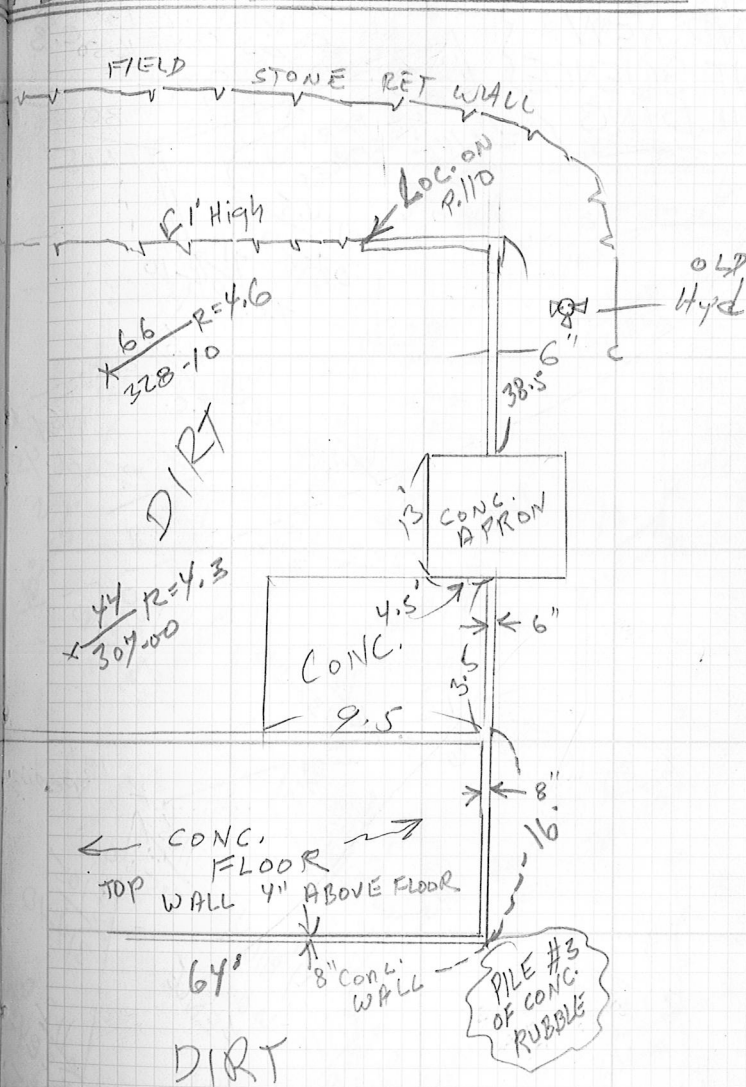 FIELD STONE RET WALL
LOC. ON
P.110
1' High
OLD
Hyd
66 R=4.6
328-10
6"
38.5
DIRT
13'
CONC.
APRON
44 R=4.3
307-00
4.5'
6"
CONC.
3.5
9.5
8"
16'
CONC.
FLOOR
TOP WALL 4" ABOVE FLOOR
64'
8" CONC.
WALL
PILE #3
OF CONC.
RUBBLE
DIRT